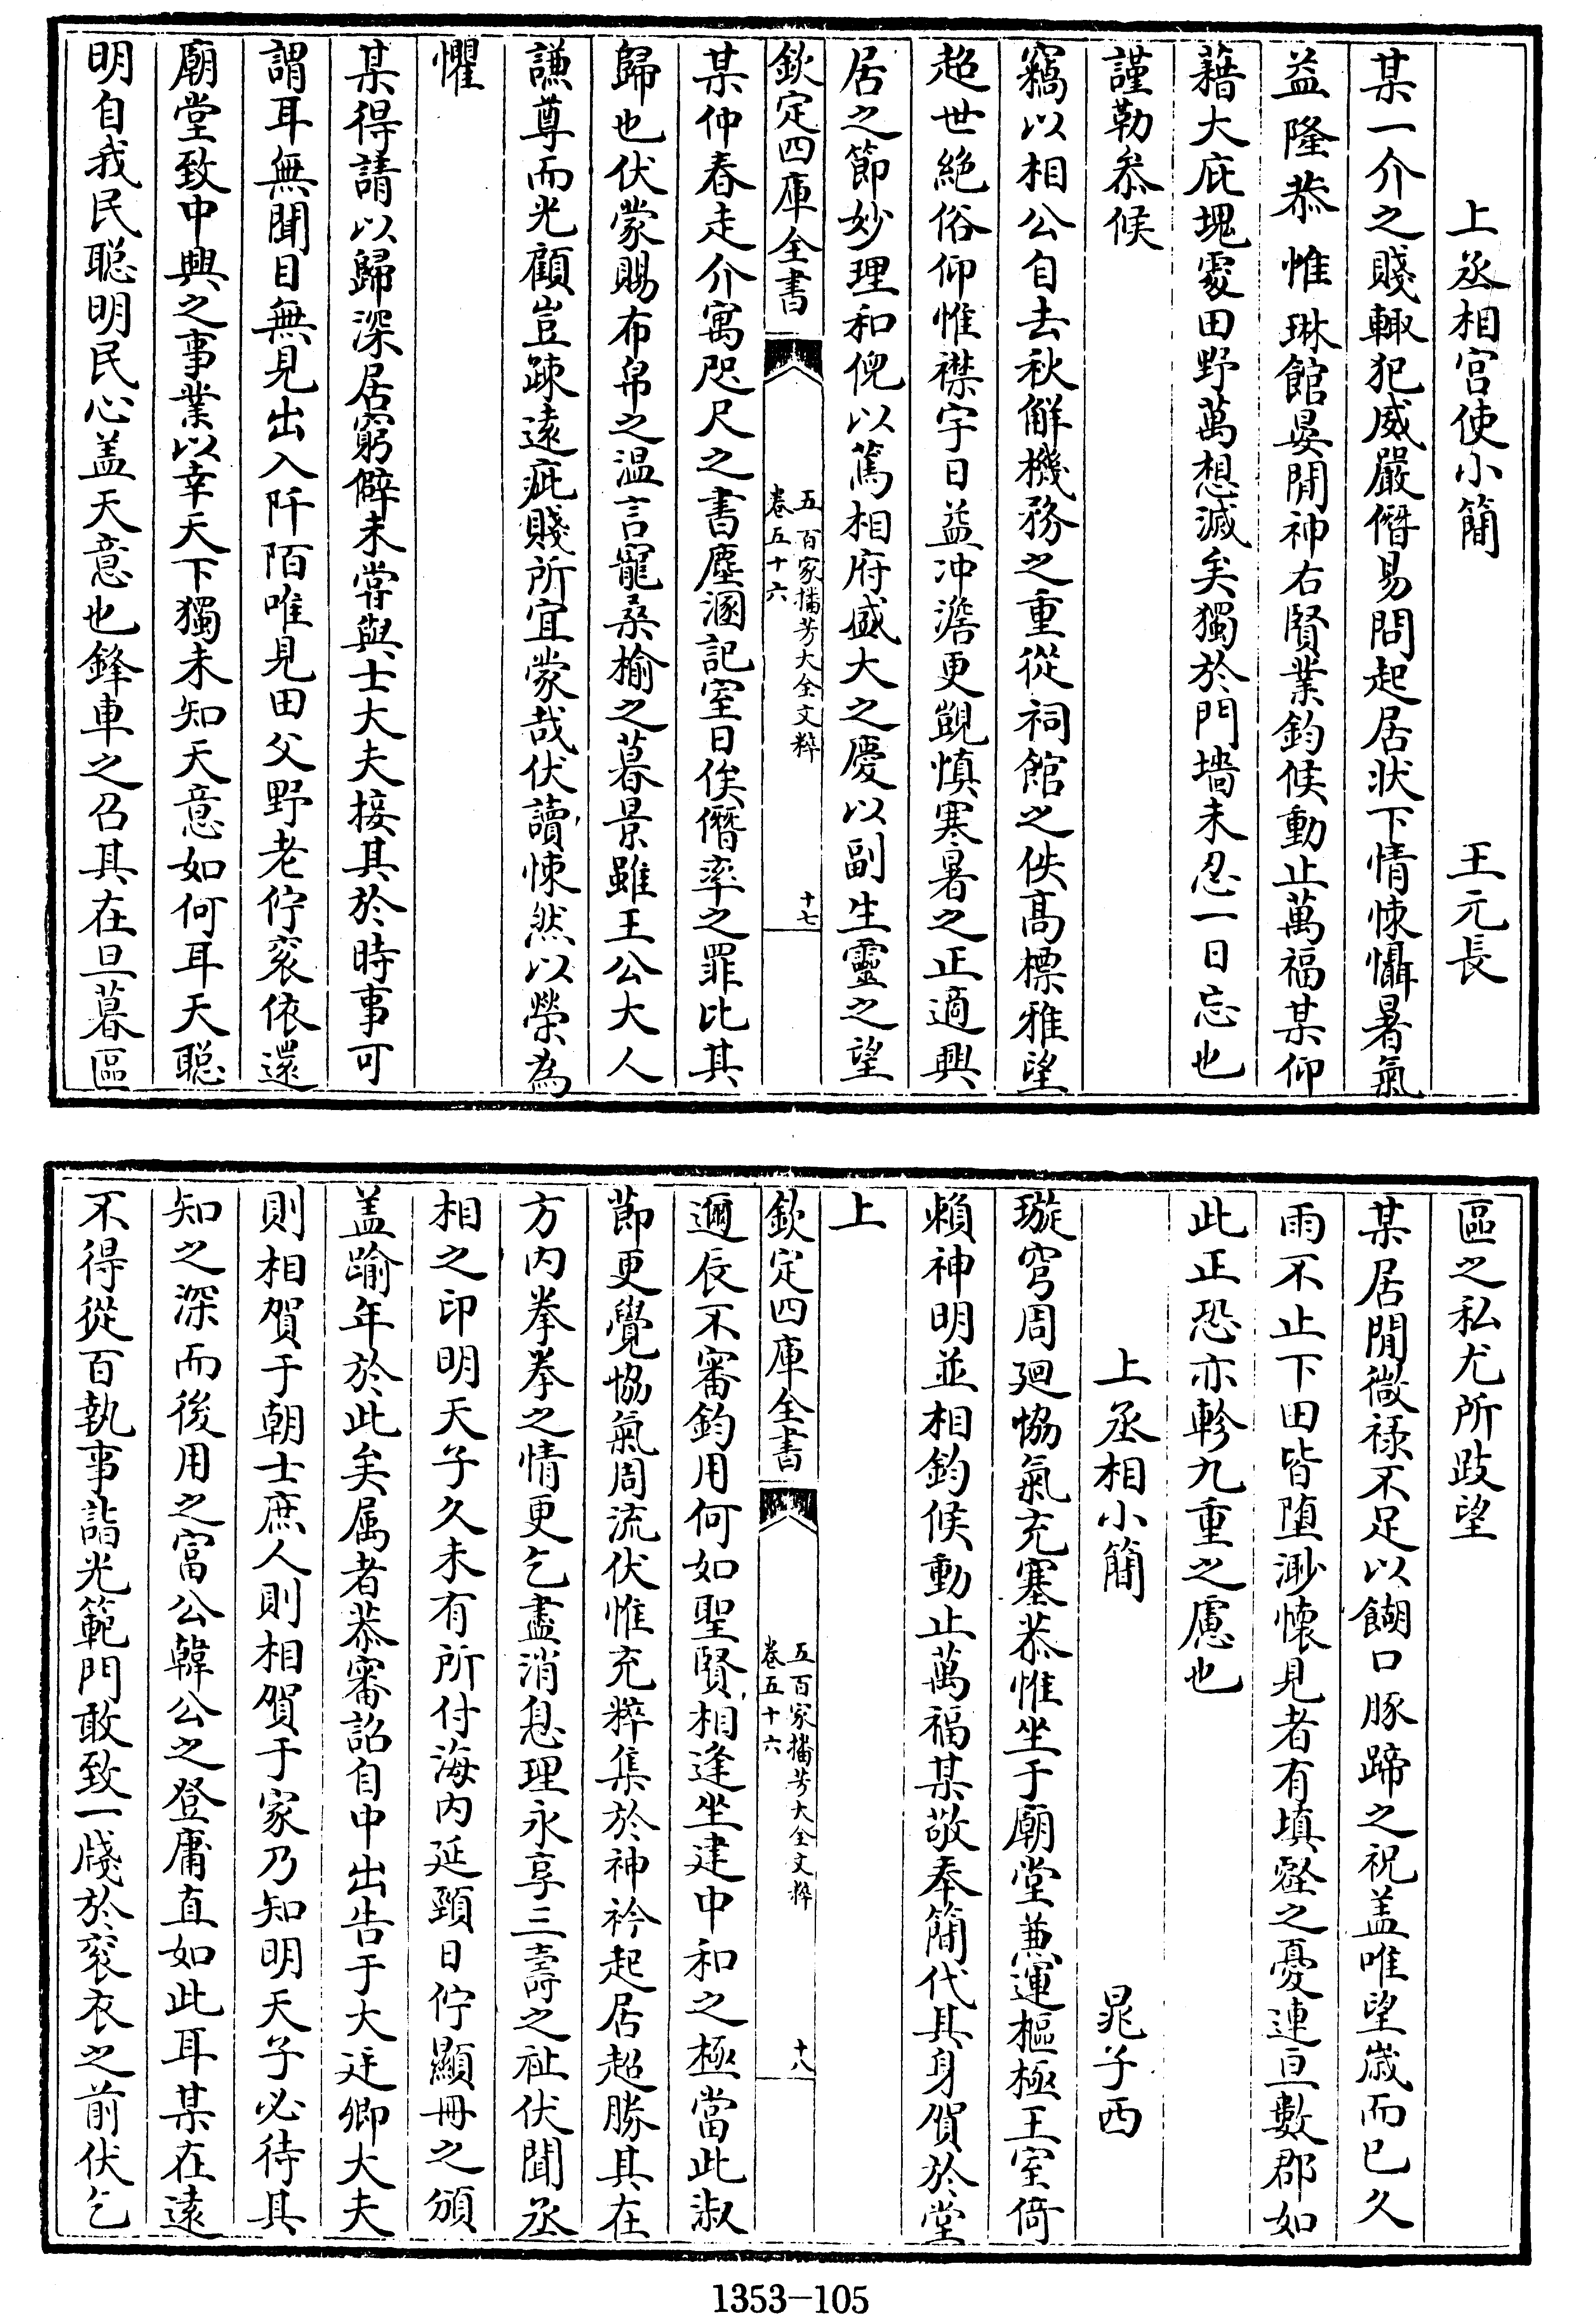 上丞相宫使小簡 王元長
某一介之賤輙犯威嚴僭易問起居狀下情悚懼暑氣
益隆恭惟琳館晏閒神右賢業鈞候動止萬福某仰
藉大庇塊處田野萬想滅矣獨於門墻未忍一日忘也
謹勒叅候
竊以相公自去秋觧機務之重從祠館之佚髙標雅望
超世絶俗仰惟襟宇日益冲澹更覬慎寒暑之正適興
居之節妙理和倪以篤相府盛大之慶以副生靈之望
欽定四庫全書
五百家播芳大全文粹
卷五十六
十七
某仲春走介寓咫尺之書塵溷記室日俟僭率之罪比其
歸也伏蒙賜布帛之温言寵桑榆之暮景雖王公大人
謙尊而光顧豈疎逺疵賤所宜蒙哉伏讀悚然以榮為
懼
某得請以歸深居窮僻未甞與士大夫接其於時事可
謂耳無聞目無見出入阡陌唯見田父野老佇衮依還
廟堂致中興之事業以幸天下獨未知天意如何耳天聪
明自我民聪明民心盖天意也鋒車之召其在旦暮區
區之私尤所跂望
某居閒微禄不足以餬口豚蹄之祝盖唯望嵗而已久
雨不止下田皆堕渺㳽見者有填壑之憂連亘數郡如
此正恐亦軫九重之慮也
上丞相小簡 晁子西
璇穹周廻恊氣充塞恭惟坐于廟堂兼運樞極王室倚
頼神明並相鈞候動止萬福某敬奉簡代其身賀於堂
上
欽定四庫全書
五百家播芳大全文粹
卷五十六
十八
邇辰不審鈞用何如聖賢相逢坐建中和之極當此淑
莭更覺恊氣周流伏惟充粹集於神衿起居超勝其在
方内拳拳之情更乞盡消息理永享三壽之祉伏聞丞
相之印明天子久未有所付海内延頸日佇顯冊之頒
盖踰年於此矣属者恭審詔自中出告于大廷卿大夫
則相賀于朝士庶人則相賀于家乃知明天子必待其
知之深而後用之富公韓公之登庸直如此耳某在逺
不得從百執事詣光範門敢致一牋於衮衣之前伏乞
1353-105